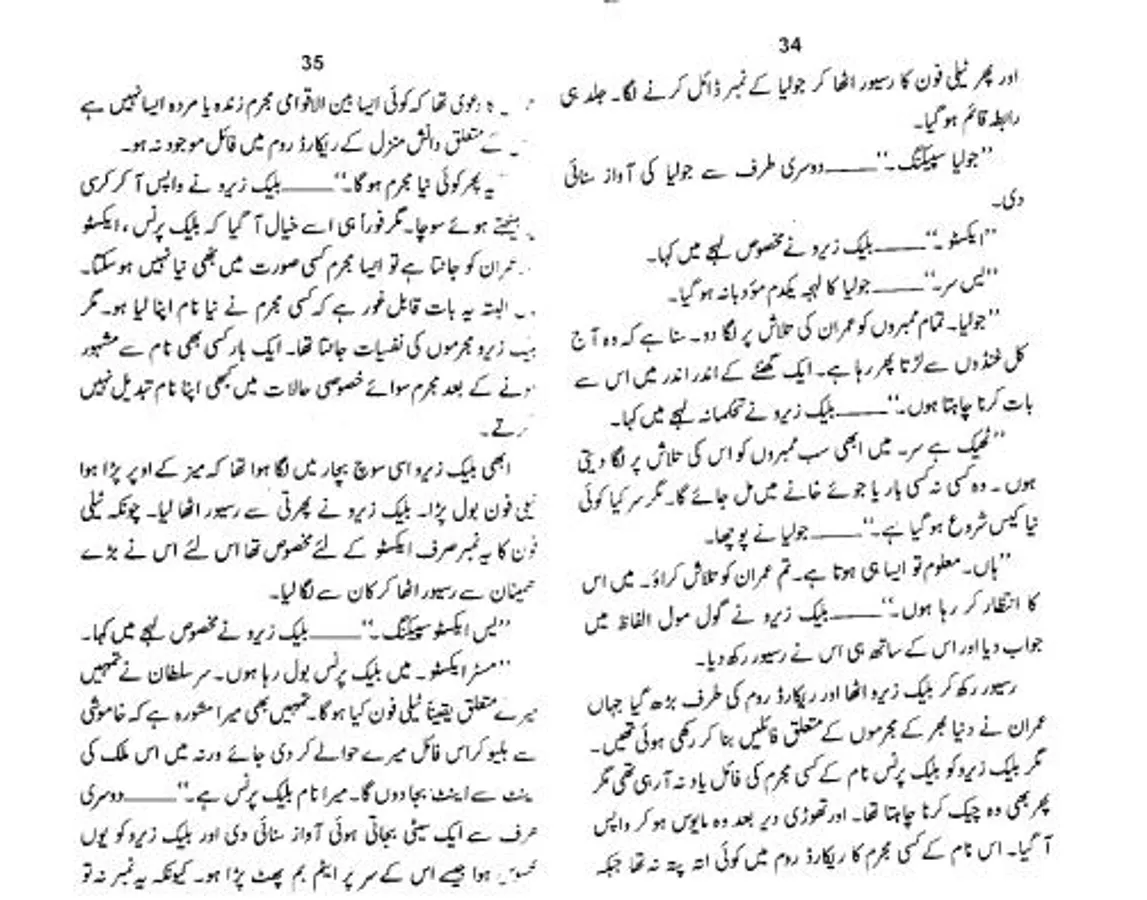 34
اور پھر ٹیلی فون کا رسیور اٹھا کر جولیا کے نمبر ڈائل کرنے لگا۔ جلد ہی
رابطہ قائم ہو گیا۔
”جولیا سپیکنگ۔“ ــــــ دوسری طرف سے جولیا کی آواز سنائی
دی۔
”ایکسٹو۔“ ــــــ بلیک زیرو نے مخصوص لہجے میں کہا۔
”یس سر۔“ ــــــ جولیا کا لہجہ یکدم مؤدبانہ ہو گیا۔
”جولیا۔ تمام ممبروں کو عمران کی تلاش پر لگا دو۔ سنا ہے کہ وہ آج
کل غنڈوں سے لڑتا پھر رہا ہے۔ ایک گھنٹے کے اندر اندر میں اس سے
بات کرنا چاہتا ہوں۔“ ــــــ بلیک زیرو نے تحکمانہ لہجے میں کہا۔
”ٹھیک ہے سر۔ میں ابھی سب ممبروں کو اس کی تلاش پر لگا دیتی
ہوں۔ وہ کسی نہ کسی بار یا جوئے خانے میں مل جائے گا۔ مگر سر کیا کوئی
نیا کیس شروع ہو گیا ہے۔“ ــــــ جولیا نے پوچھا۔
”ہاں۔ معلوم تو ایسا ہی ہوتا ہے۔ تم عمران کو تلاش کراؤ۔ میں اس
کا انتظار کر رہا ہوں۔“ ــــــ بلیک زیرو نے گول مول الفاظ میں
جواب دیا اور اس کے ساتھ ہی اس نے رسیور رکھ دیا۔
رسیور رکھ کر بلیک زیرو اٹھا اور ریکارڈ روم کی طرف بڑھ گیا جہاں
عمران نے دنیا بھر کے مجرموں کے متعلق فائلیں بنا کر رکھی ہوئی تھیں۔
مگر بلیک زیرو کو بلیک پرنس نام کے کسی مجرم کی فائل یاد نہ آ رہی تھی مگر
پھر بھی وہ چیک کرنا چاہتا تھا۔ اور تھوڑی دیر بعد وہ مایوس ہو کر واپس
آ گیا۔ اس نام کے کسی مجرم کا ریکارڈ روم میں کوئی اتہ پتہ نہ تھا جبکہ
35
دعویٰ تھا کہ کوئی ایسا بین الاقوامی مجرم زندہ یا مردہ ایسا نہیں ہے
کے متعلق دانش منزل کے ریکارڈ روم میں فائل موجود نہ ہو۔
”یہ پھر کوئی نیا مجرم ہو گا۔“ ــــــ بلیک زیرو نے واپس آ کر کرسی
بیٹھتے ہوئے سوچا۔ مگر فوراً ہی اسے خیال آ گیا کہ بلیک پرنس، ایکسٹو
عمران کو جانتا ہے تو ایسا مجرم کسی صورت میں بھی نیا نہیں ہو سکتا۔
البتہ یہ بات قابل غور ہے کہ کسی مجرم نے نیا نام اپنا لیا ہو۔ مگر
زیرو مجرموں کی نفسیات جانتا تھا۔ ایک بار کسی بھی نام سے مشہور
ہونے کے بعد مجرم سوائے خصوصی حالات میں کبھی اپنا نام تبدیل نہیں
کرتے۔
ابھی بلیک زیرو اسی سوچ بچار میں لگا ہوا تھا کہ میز کے اوپر پڑا ہوا
ٹیلی فون بول پڑا۔ بلیک زیرو نے پھرتی سے رسیور اٹھا لیا۔ چونکہ ٹیلی
فون کا یہ نمبر صرف ایکسٹو کے لئے مخصوص تھا اس لئے اس نے بڑے
اطمینان سے رسیور اٹھا کر کان سے لگا لیا۔
”یس ایکسٹو سپیکنگ۔“ ــــــ بلیک زیرو نے مخصوص لہجے میں کہا۔
”مسٹر ایکسٹو۔ میں بلیک پرنس بول رہا ہوں۔ سر سلطان نے تمہیں
میرے متعلق یقیناً ٹیلی فون کیا ہو گا۔ تمہیں بھی میرا مشورہ ہے کہ خاموشی
سے بلیو کراس فائل میرے حوالے کر دی جائے ورنہ میں اس ملک کی
اینٹ سے اینٹ بجا دوں گا۔ میرا نام بلیک پرنس ہے۔“ ــــــ دوسری
طرف سے ایک سیٹی بجاتی ہوئی آواز سنائی دی اور بلیک زیرو کو یوں
محسوس ہوا جیسے اس کے سر پر ایٹم بم پھٹ پڑا ہو۔ کیونکہ یہ نمبر نہ تو